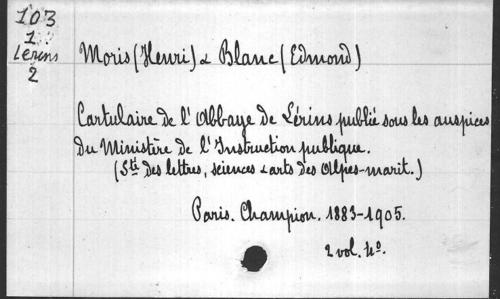 103
1
Lérins
2
Moris (Henri) & Blanc (Edmond)
Cartulaire de l'Abbaye de Lérins publié sous les auspices
du Ministère de l'Instruction publique.
(Sté des lettres, sciences & arts des Alpes-marit.)
Paris. Champion. 1883-1905.
2 vol. 4o.